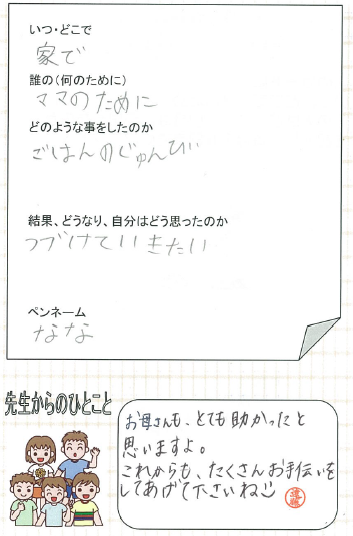 いつ・どこで
家で
誰の(何のために)
ママのために
どのような事をしたのか
ごはんのじゅんび
結果、どうなり、自分はどう思ったのか
つづけていきたい
ペンネーム
なな
先生からのひとこと
お母さんも、とても助かったと
思いますよ。
これからも、たくさんお手伝いを
してあげて下さいね